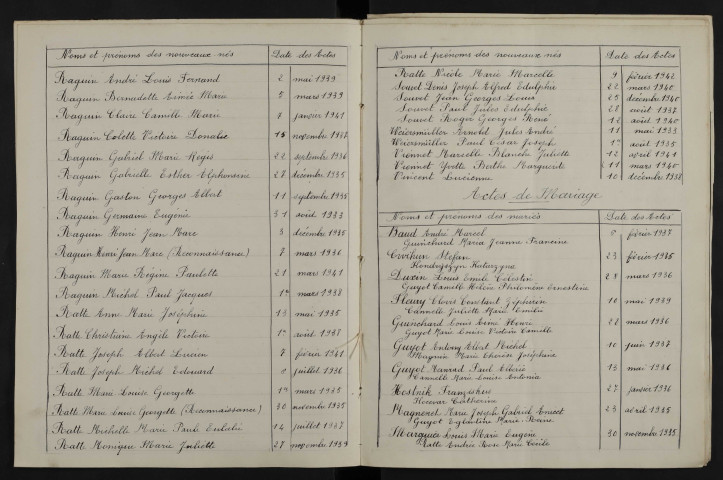 Noms et prénoms des nouveaux nés Date des Actes
Raguin André Louis Fernand 2 mai 1939
Raguin Bernadette Aimée Marie 5 mars 1939
Raguin Claire Camille Marie 7 janvier 1941
Raguin Colette Victoire Donalie 15 novembre 1937
Raguin Gabriel Marie Régis 22 septembre 1936
Raguin Gabrielle Esther Alphonsine 27 décembre 1935
Raguin Gaston Georges Albert 11 septembre 1935
Raguin Germaine Eugénie 31 août 1933
Raguin Henri Jean Marc 3 décembre 1935
Raguin Henri Jean Marc (Reconnaissance) 7 mars 1936
Raguin Marie Régine Paulette 21 mars 1941
Raguin Michel Paul Jacques 1er mars 1938
Ratte Anne Marie Joséphine 13 mai 1935
Ratte Christiane Angèle Victoire 1er août 1937
Ratte Joseph Albert Lucien 7 février 1941
Ratte Joseph Michel Edouard juillet 1936
Ratte Marie Louise Georgette 1er mars 1935
Ratte Marie Louise Georgette (Reconnaissance) 30 novembre 1935
Ratte Michelle Marie Paule Eulalie 14 juillet 1937
Ratte Monique Marie Juliette 27 novembre 1939
Noms et prénoms des nouveaux nés Date des Actes
Ratte Nicole Marie Marcelle 9 février 1942
Souvet Denis Joseph Alfred Edulphie 22 mars 1940
Souvet Jean Georges Louis 25 décembre 1940
Souvet Paul Jules Edulphie 28 août 1937
Souvet Roger Georges René 12 août 1940
Weiersmüller Arnold Jules André 11 mai 1933
Weiersmüller Paul César Joseph 1er août 1935
Viennet Marcelle Blanche Juliette 12 avril 1941
Viennet Yvette Berthe Marguerite 11 mars 1940
Vincent Lucienne 10 décembre 1938
Actes de Mariage
Noms et prénoms des mariés Date des Actes
Baud André Marcel février 1937
Guinchard Maria Jeanne Francine
Stefan 23 février 1935
Katarzyna
Louis Emile Célestin 28 mars 1936
Guyot Camille Hélène Philomène Ernestina
Fleury Clovis Constant Zéphirin 10 mai 1939
Cannelle Juliette Marie Emilie
Guinchard Louis Aimé Henri 28 mars 1936
Guyot Marie Louise Victoire Camille
Guyot Antony Albert Michel 10 juin 1937
Marie Thérèse Joséphine
Guyot Conrad Paul Elisée 13 mai 1936
Marie Louise Antonia
Hostnik Franziskus 27 janvier 1936
Hocevar Catherine
Magnenet Marie Joseph Gabriel Anicet 23 avril 1935
Guyot Eglantine Marie Jeanne
Marquis Louis Marie Eugène 30 novembre 1935
Ratte Andrée Rose Marie Cécile